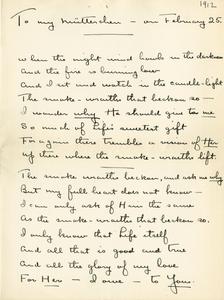 1912
To my Mütterchen — on February 25
When the night wind howls in the darkness
And the fire is burning low
And I sit and watch in the candle-light
The smoke-wraiths that beckon so —
I wonder why He should give to me
So much of Life's sweetest gift
For again there trembles a vision of Her
Up there where the smoke-wraiths lift.
The smoke wraiths beckon, and ask me why
But my full heart does not know —
I can only ask of Him the same
As the smoke-wraiths that beckon so.
I only know that Life itself
And all that is good and true
And all the glory of my love
For Her — I owe — to You.